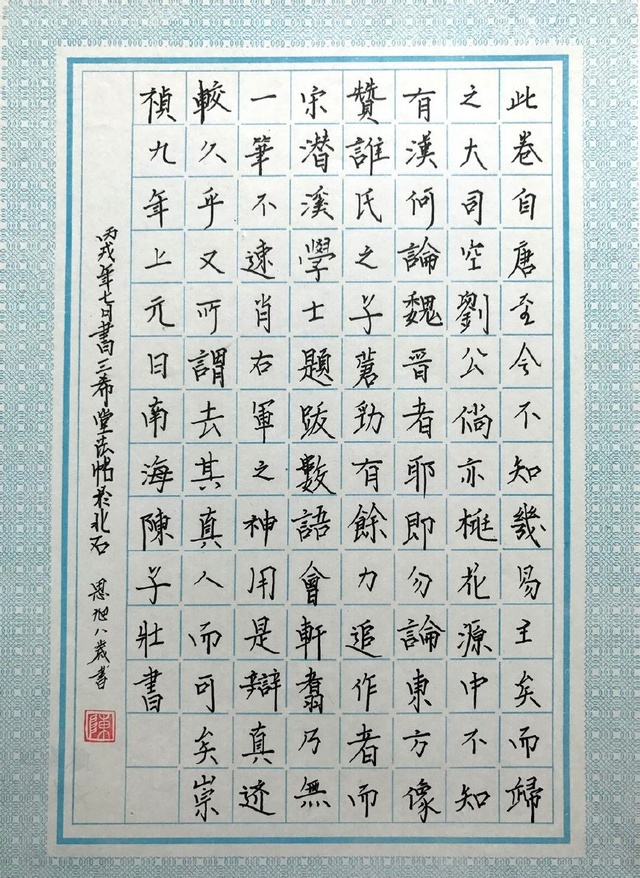 此卷自唐至今不知幾易主矣而歸
之大司空劉公倘亦桃花源中不知
有漢何論魏晉者耶即勿論東方像
贊誰氏之子蒼勁有餘力追作者而
宋潛溪學士題跋數語會軒翥乃無
一筆不速肖右軍之神用是辯真迹
較久乎又所謂去其真人而可矣崇
禎九年上元日南海陳子壯書
丙戌年七日書三希堂法帖於北石 恩旭八歲書